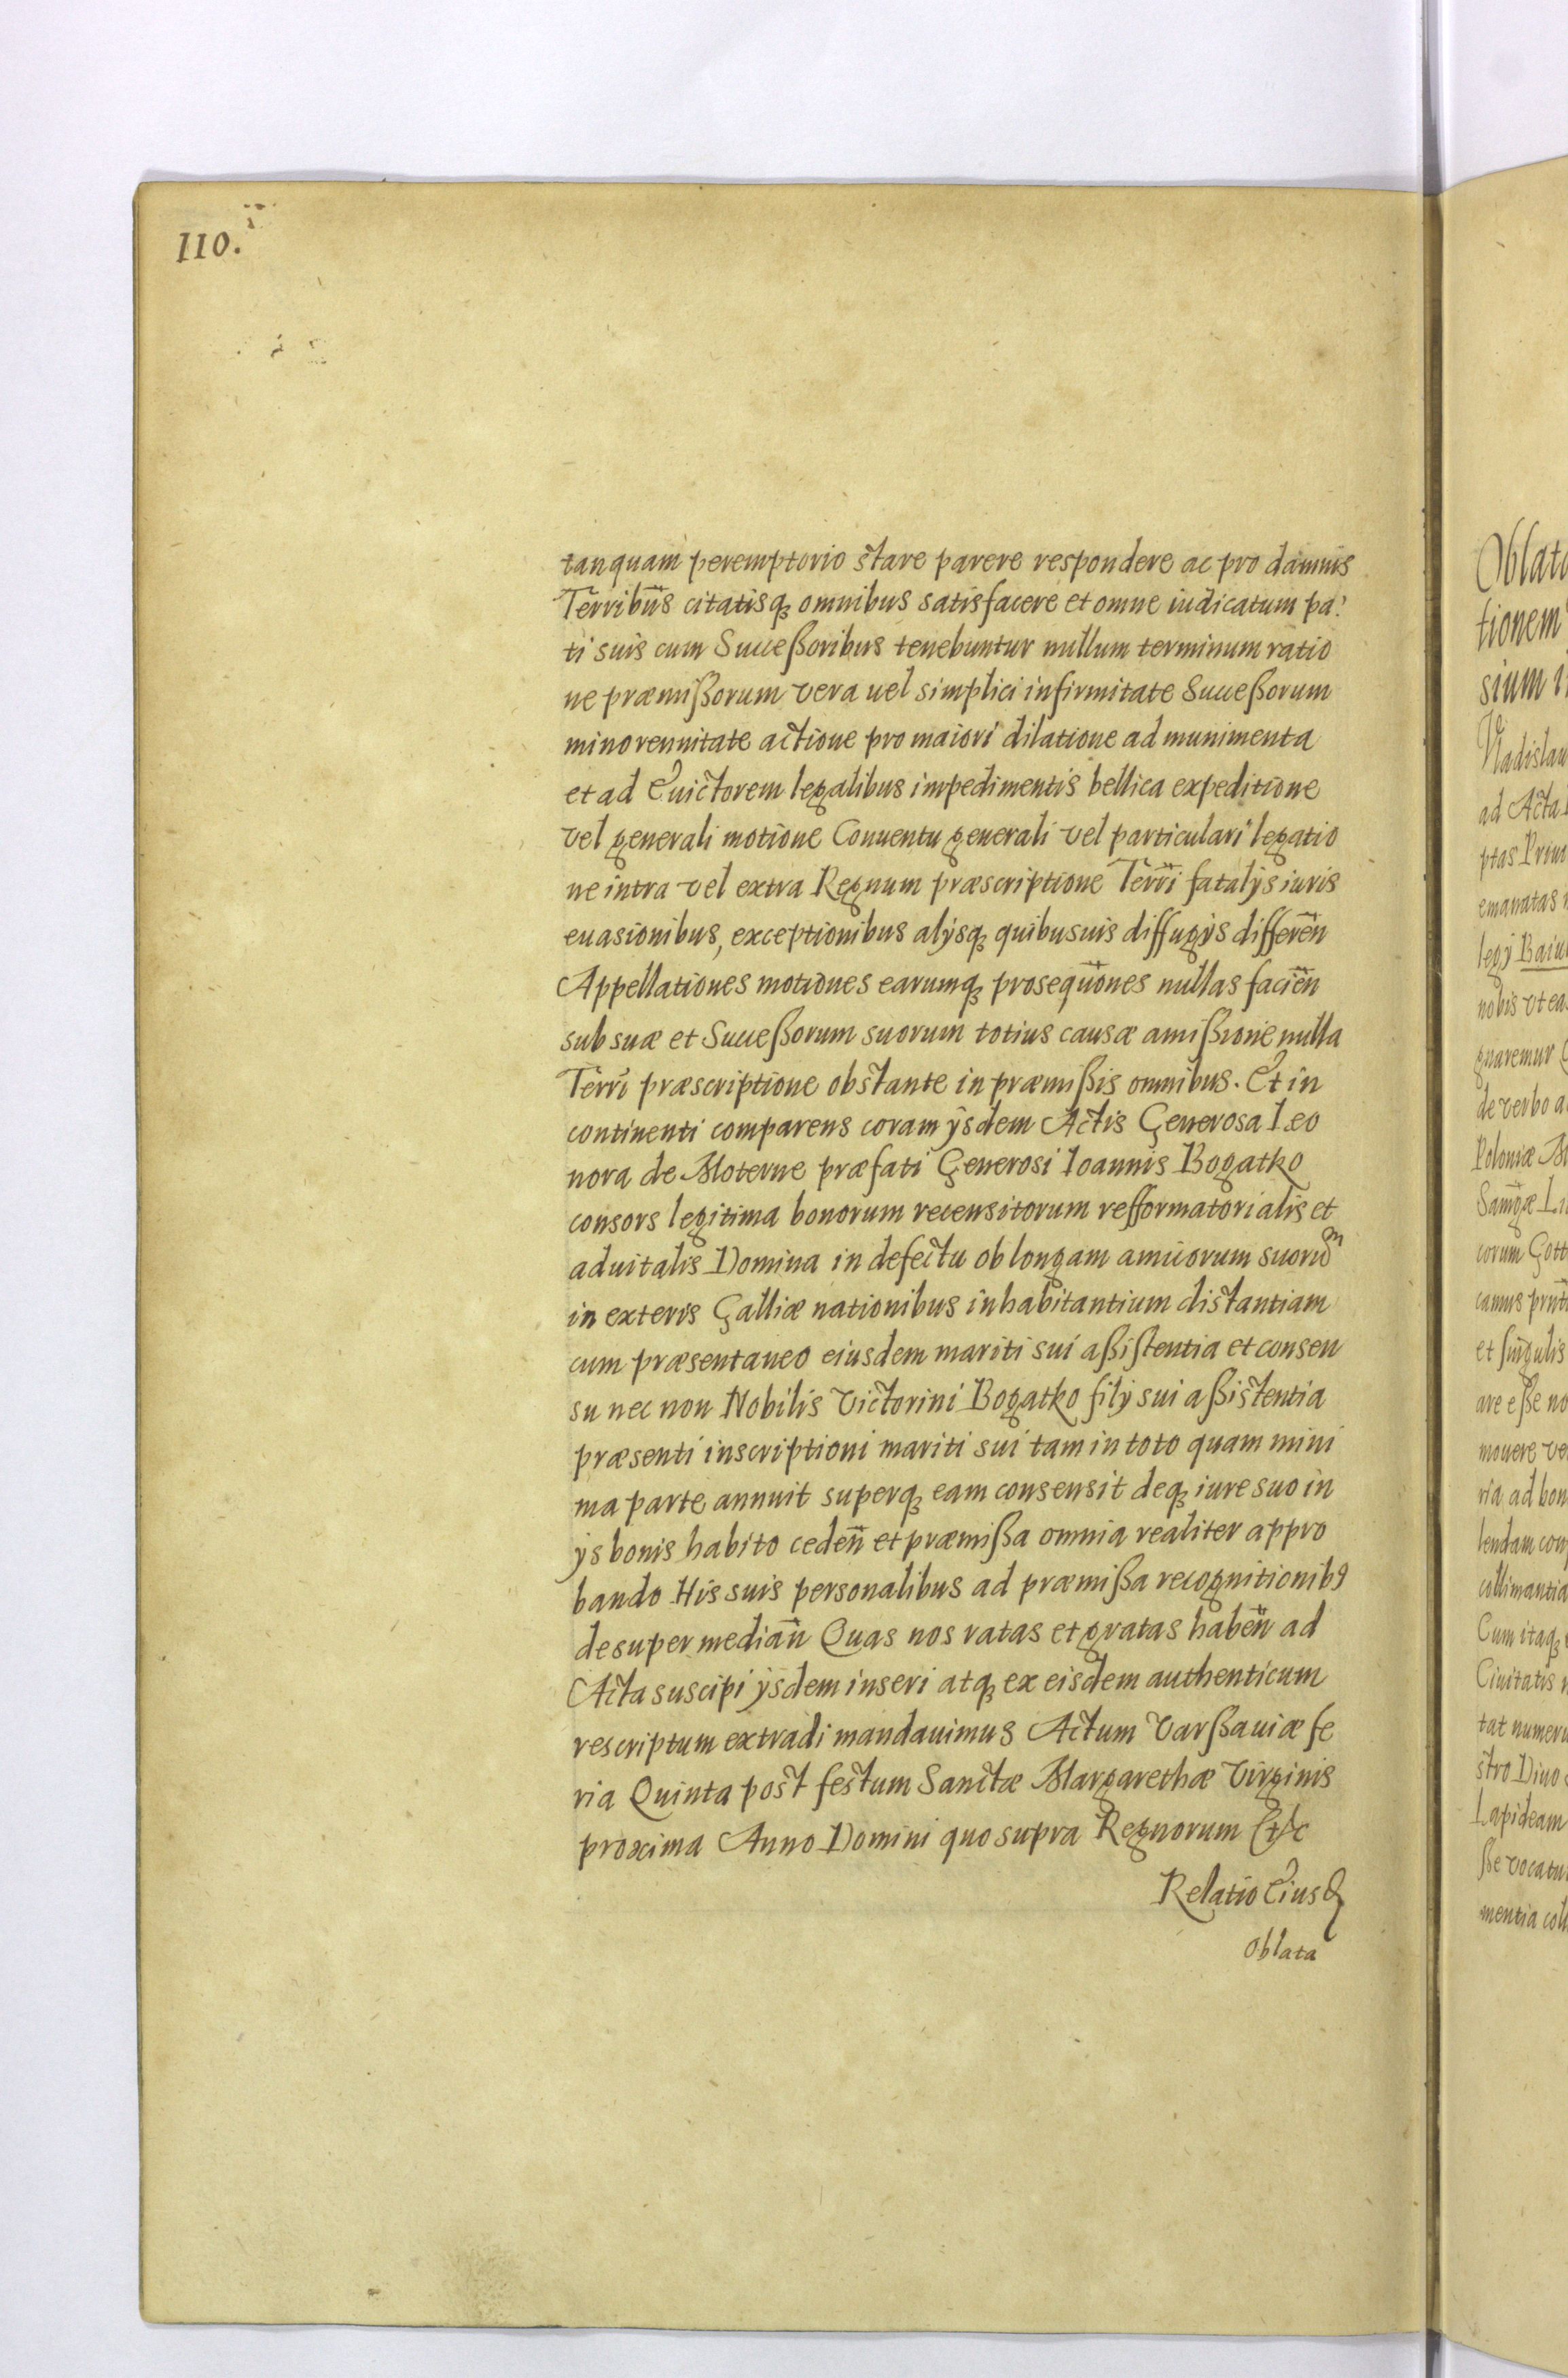 110.
tanquam peremptorio stare parere respondere ac pro damnis
Terribus citatisq̃ omnibus satisfacere et omne iudicatum pa:
ti suis cum Successoribus tenebuntur nullum terminum ratio
ne præmißorum vera uel simplici infirmitate Succeßorum
minorennitate actione pro maiori dilatione ad munimenta
et ad Euictorem legalibus impedimentis bellica expeditione
vel generali motione Conuentu generali vel particulari legatio
ne intra vel extra Regnum præscriptione Terri fatalÿs iuris
euasionibus, exceptionibus alÿsq̃ quibusuis diffugÿs differen̄
Appellationes motiones earumq̃ prosequōnes nullas facien̄
sub suæ et Succeßorum suorum totius causæ amißione nulla
Terri præscriptione obstante in præmißis omnibus. Et in
continenti comparens coram ÿsdem Actis Generosa Leo
nora de Moterne præfati Generosi Ioannis Bogatko
consors legitima bonorum recensitorum refformatorialis et
aduitalis Domina in defectu ob longam amicorum suorum
in exteris Galliæ nationibus inhabitantium distantiam
cum præsentaneo eiusdem mariti sui aßistentia et consen
su nec non Nobilis Victorini Bogatko filÿ sui aßistentia
præsenti inscriptioni mariti sui tam in toto quam mini
ma parte annuit superq̃ eam consensit deq̃ iure suo in
ÿs bonis habito ceden̄ et præmißa omnia realiter appro
bando His suis personalibus ad præmißa recognitionibꝰ
desuper median̄ Quas nos ratas et gratas haben̄ ad
Acta suscipi ÿsdem inseri atq̃ ex eisdem authenticum
rescriptum extradi mandauimus Actum Varßauiæ fe
ria Quinta post festum Sanctæ Margarethæ Virginis
proxima Anno Domini quo supra Regnorum Etc
Relatio Eiusd
Oblata
Oblat
tionem
sium
Vladislau
ad Acta
ptas
emanatas
legÿ Baiu
nobis vt ea
gnaremur
de verbo a
Poloniæ M
Samogæ Li
corum Gott
camus
et singulis
are eße no
mouere ve
ria ad bon
lendam con
collimantia
Cum itaq̃
Ciuitatis
tat numeru
stro Diuo
Lapideam
ße vocatu
mentia coll